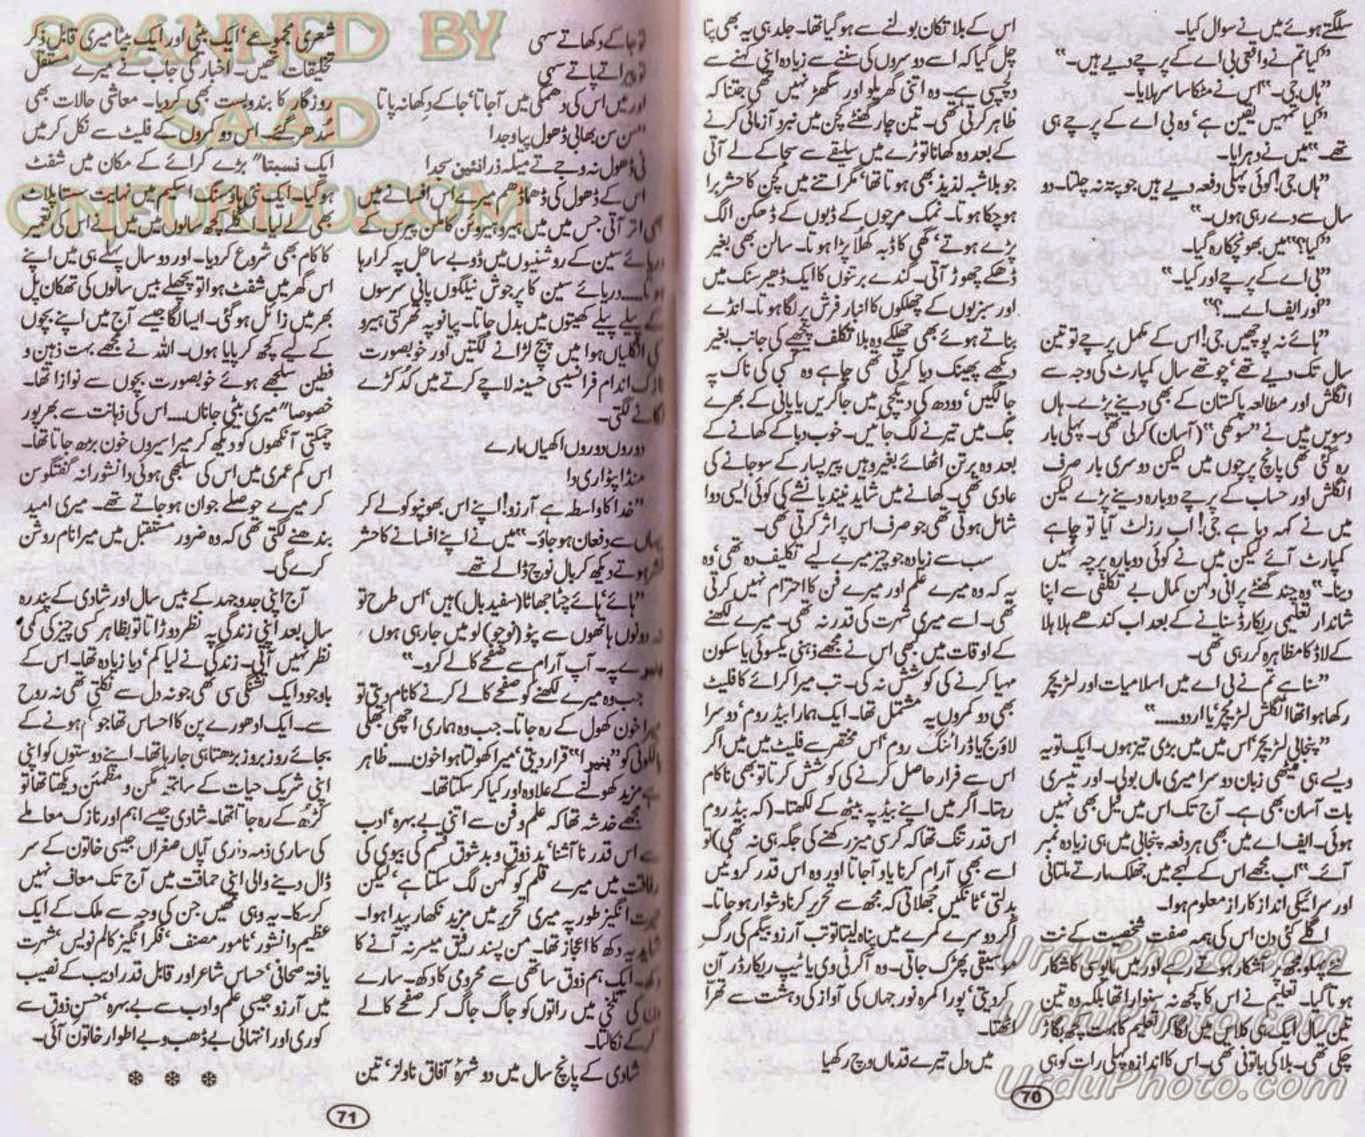 سلگتے ہوئے میں نے سوال کیا۔
"کیا تم نے واقعی بی اے کے پرچے دیے ہیں۔"
"ہاں جی۔" اس نے مٹکا سا سر ہلایا۔
"کیا تمہیں یقین ہے، وہ بی اے کے پرچے ہی
تھے۔" میں نے دہرایا۔
"ہاں جی! کوئی پہلی دفعہ دیے ہیں جو پتہ نہ چلتا۔ دو
سال سے دے رہی ہوں۔"
"کیا؟" میں بھونچکا رہ گیا۔
"بی اے کے پرچے اور کیا۔"
"اور ایف اے....؟"
"ہائے نہ پوچھیں جی! اس کے مکمل پرچے تو تین
سال تک دیے تھے، چوتھے سال کمپارٹ کی وجہ سے
انگلش اور مطالعہ پاکستان کے بھی دینے پڑے۔ ہاں
دسویں میں نے "سوکھی" (آسان) کرلی تھی۔ پہلی بار
رہ گئی تھی پانچ پرچوں میں لیکن دوسری بار صرف
انگلش اور حساب کے پرچے دوبارہ دینے پڑے لیکن
میں نے کہہ دیا ہے جی! اب رزلٹ آیا تو چاہے
کمپارٹ آئے لیکن میں نے کوئی دوبارہ پرچہ نہیں
دینا۔" وہ چند گھنٹے پرانی دلہن کمال بے تکلفی سے اپنا
شاندار تعلیمی ریکارڈ سنانے کے بعد اب کندھے ہلا ہلا
کے لاڈ کا مظاہرہ کررہی تھی۔
"سنا ہے تم نے بی اے میں اسلامیات اور لٹریچر
رکھا ہوا تھا انگلش لٹریچر، یا اردو......"
"پنجابی لٹریچر، اس میں میں بڑی تیز ہوں۔ ایک تو یہ
ویسے ہی میٹھی زبان دوسرا میری ماں بولی۔ اور تیسری
بات آسان بھی ہے۔ آج تک اس میں فیل بھی نہیں
ہوئی۔ ایف اے میں بھی ہر دفعہ پنجابی میں ہی زیادہ نمبر
آئے۔" اب مجھے اس کے لہجے میں جھلک مارتے ملتانی
اور سرائیکی انداز کا راز معلوم ہوا۔
اگلے کئی دن اس کی ہمہ صفت شخصیت کے نت
نئے پہلو مجھ پر آشکار ہوتے رہے اور میں مایوسی کا شکار
ہوتا گیا۔ تعلیم نے اس کا کچھ نہ سنوارا تھا بلکہ وہ تین
تین سال ایک ہی کلاس میں لگا کر تعلیم کا بہت کچھ بگاڑ
چکی تھی۔ بلا کی باتونی تھی۔ اس کا اندازہ پہلی رات کو ہی
اس کے بلا تکان بولنے سے ہوگیا تھا۔ جلد ہی یہ بھی پتا
چل گیا کہ اسے دوسروں کی سننے سے زیادہ اپنی کہنے سے
دلچسپی ہے۔ وہ اتنی گھریلو اور سگھڑ نہیں تھی جتنا کہ
ظاہر کرتی تھی۔ تین چار گھنٹے کچن میں نبرد آزمائی کرنے
کے بعد وہ کھانا تو ٹرے میں سلیقے سے سجا کے لے آتی
جو بلاشبہ لذیذ بھی ہوتا تھا، مگر اتنے میں کچن کا حشر برا
ہوچکا ہوتا۔ نمک مرچوں کے ڈبوں کے ڈھکن الگ
پڑے ہوتے، گھی کا ڈبہ کھلا پڑا ہوتا۔ سالن بھی بغیر
ڈھکے چھوڑ آتی۔ گندے برتنوں کا ایک ڈھیر سنک میں
اور سبزیوں کے چھلکوں کا انبار فرش پر لگا ہوتا۔ انڈے
بناتے ہوئے بھی چھلکے وہ بلا تکلف پیچھے کی جانب بغیر
دیکھے پھینک دیا کرتی تھی چاہے وہ کسی کی ناک پہ
جا لگیں، دودھ کی دیگچی میں جا گریں یا پانی کے بھرے
جگ میں تیرنے لگ جائیں۔ خوب دبا کے کھانے کے
بعد وہ برتن اٹھائے بغیر وہیں پیر پسار کے سوجانے کی
عادی تھی۔ کھانے میں شاید نیند یا نشے کی کوئی ایسی دوا
شامل ہوتی تھی جو صرف اس پر اثر کرتی تھی۔
سب سے زیادہ جو چیز میرے لیے تکلیف دہ تھی، وہ
یہ کہ وہ میرے علم اور میرے فن کا احترام نہیں کرتی
تھی۔ اسے میری شہرت کی قدر نہ تھی۔ میرے لکھنے
کے اوقات میں بھی اس نے مجھے ذہنی یکسوئی یا سکون
مہیا کرنے کی کوشش نہ کی۔ تب میرا کرائے کا فلیٹ
بھی دو کمروں پہ مشتمل تھا۔ ایک ہمارا بیڈ روم، دوسرا
لاؤنج یا ڈرائنگ روم، اس مختصر سے فلیٹ میں میں اگر
اس سے فرار حاصل کرنے کی کوشش کرتا تو بھی ناکام
رہتا۔ اگر میں اپنے بیڈ پہ بیٹھ کے لکھتا۔ (کہ بیڈ روم
اس قدر تنگ تھا کہ کرسی میز رکھنے کی جگہ ہی نہ تھی) تو
اسے بھی آرام کرنا یاد آجاتا اور وہ اس قدر کروٹیں
بدلتی، ٹانگیں جھلاتی کہ مجھ سے تحریر کرنا دشوار ہوجاتا۔
اگر دوسرے کمرے میں پناہ لیتا تو تب آرزو بیگم کی رگ
موسیقی پھڑک جاتی۔ وہ اگر ٹی وی یا ٹیپ ریکارڈر آن
کردیتی، پورا کمرہ نور جہاں کی آواز کی دہشت سے تھرا
اٹھتا۔
میں دل تیرے قدماں وچ رکھیا
70
تو جاکے دکھاتے سہی
تو پیر اتے پاتے سہی
اور میں اس کی دھمکی میں آجاتا، جاکے دکھا نہ پاتا
"سن سن بھابی ڈھول پیا وجدا
نی ڈھول نہ وجے تے میلہ ذرا نئیں سجدا
اس کے ڈھول کی دھما دھم میرے اس افسانے میں
بھی اتر آتی جس میں میں ہیرو ہیروئن کا ملن پیرس کے
دریائے سین کے روشنیوں میں ڈوبے ساحل پہ کرا رہا
ہوتا.....دریائے سین کا پرجوش نیلگوں پانی سرسوں
کے پیلے پیلے کھیتوں میں بدل جاتا۔ پیانو پہ تھرکتی ہیرو
کی انگلیاں ہوا میں پیچ لڑانے لگتیں اور خوبصورت
نازک اندام فرانسیسی حسینہ لاچے کرتے میں گدکڑے
لگانے لگتی۔
دوروں دوروں اکھیاں مارے
منڈا پٹواری دا
"خدا کا واسطہ ہے آرزو! اپنے اس بھونپو کو لے کر
یہاں سے دفعان ہوجاؤ۔" میں نے اپنے افسانے کا حشر
نشر ہوتے دیکھ کر بال نوچ ڈالے تھے۔
"ہائے، ہائے چٹا جھاٹا (سفید بال) ہیں، اس طرح تو
نہ دونوں ہاتھوں سے پٹو (نوچو) لو میں جارہی ہوں
پرے۔ آپ آرام سے صفحے کالے کرو۔"
جب وہ میرے لکھنے کو صفحے کالے کرنے کا نام دیتی تو
میرا خون کھول کے رہ جاتا۔ جب وہ ہماری اچھی بھلی
قرار دیتی، میرا کھولتا ہوا خون..... ظاہر
ہے مزید کھولنے کے علاوہ اور کیا کرسکتا تھا۔
مجھے خدشہ تھا کہ علم و فن سے اتنی بے بہرہ، ادب
سے اس قدر نا آشنا، بد ذوق و بد شوق قسم کی بیوی کی
رفاقت میں میرے قلم کو گھن لگ سکتا ہے، لیکن
حیرت انگیز طور پہ میری تحریر میں مزید نکھار پیدا ہوا۔
شاید یہ دکھ کا اعجاز تھا۔ من پسند رفیق میسر نہ آنے کا
دکھ۔ ایک ہم ذوق ساتھی سے محرومی کا دکھ۔ سارے
دن کی تلخی میں راتوں کو جاگ جاگ کر صفحے کالے
کرکے نکالتا۔
شادی کے پانچ سال میں دو شہرۂ آفاق ناولز، تین
شعری مجموعے، ایک بیٹی اور ایک بیٹا میری قابل ذکر
تخلیقات تھیں۔ اخبار کی جاب نے میرے مستقل
روزگار کا بندوبست بھی کردیا۔ معاشی حالات بھی
سدھر گئے۔ اس دو کمروں کے فلیٹ سے نکل کر میں
ایک نسبتا" بڑے کرائے کے مکان میں شفٹ
ہوگیا۔ ایک نئی ہاؤسنگ اسکیم میں نہایت سستا پلاٹ
بھی لے لیا۔ اگلے کچھ سالوں میں میں نے اس کی تعمیر
کا کام بھی شروع کردیا۔ اور دو سال پہلے ہی میں اپنے
اس گھر میں شفٹ ہوا تو پچھلے بیس سالوں کی تھکان پل
بھر میں زائل ہوگئی۔ ایسا لگا جیسے آج میں اپنے بچوں
کے لیے کچھ کر پایا ہوں۔ اللہ نے مجھے بہت ذہین و
فطین سلجھے ہوئے خوبصورت بچوں سے نوازا تھا۔
خصوصا" میری بیٹی جاناں.... اس کی ذہانت سے بھرپور
چمکتی آنکھوں کو دیکھ کر میرا سیروں خون بڑھ جاتا تھا۔
اس کم عمری میں اس کی سلجھی ہوئی دانشورانہ گفتگو سن
کر میرے حوصلے جوان ہوجاتے تھے۔ میری امید
بندھنے لگتی تھی کہ وہ ضرور مستقبل میں میرا نام روشن
کرے گی۔
آج اپنی جدوجہد کے بیس سال اور شادی کے پندرہ
سال بعد اپنی زندگی پہ نظر دوڑاتا تو بظاہر کسی چیز کی کمی
نظر نہیں آتی۔ زندگی نے لیا کم، دیا زیادہ تھا۔ اس کے
باوجود ایک تشنگی سی تھی جو نہ دل سے نکلتی تھی نہ روح
سے۔ ایک ادھورے پن کا احساس تھا جو، ہونے کے
بجائے روز بروز بڑھتا ہی جارہا تھا۔ اپنے دوستوں کو اپنی
اپنی شریک حیات کے ساتھ مگن و مطمئن دیکھتا تھا تو
کڑھ کے رہ جاتا تھا۔ شادی جیسے اہم اور نازک معاملے
کی ساری ذمہ داری آپاں صفراں جیسی خاتون کے سر
ڈال دینے والی اپنی حماقت میں آج تک معاف نہیں
کرسکا۔ یہ وہی تھیں جن کی وجہ سے ملک کے ایک
عظیم دانشور، نامور مصنف، فکر انگیز کالم نویس، شہرت
یافتہ صحافی، حساس شاعر اور قابل قدر ادیب کے نصیب
میں آرزو جیسی علم و ادب سے بے بہرہ، حسن ذوق سے
کوری اور انتہائی بے ڈھب و بے اطوار خاتون آئی۔
* * *
71
SCANNED BY
SAAD
ONEURDU.COM
UrduPhoto.com
UrduPhoto.com
UrduPhoto.com